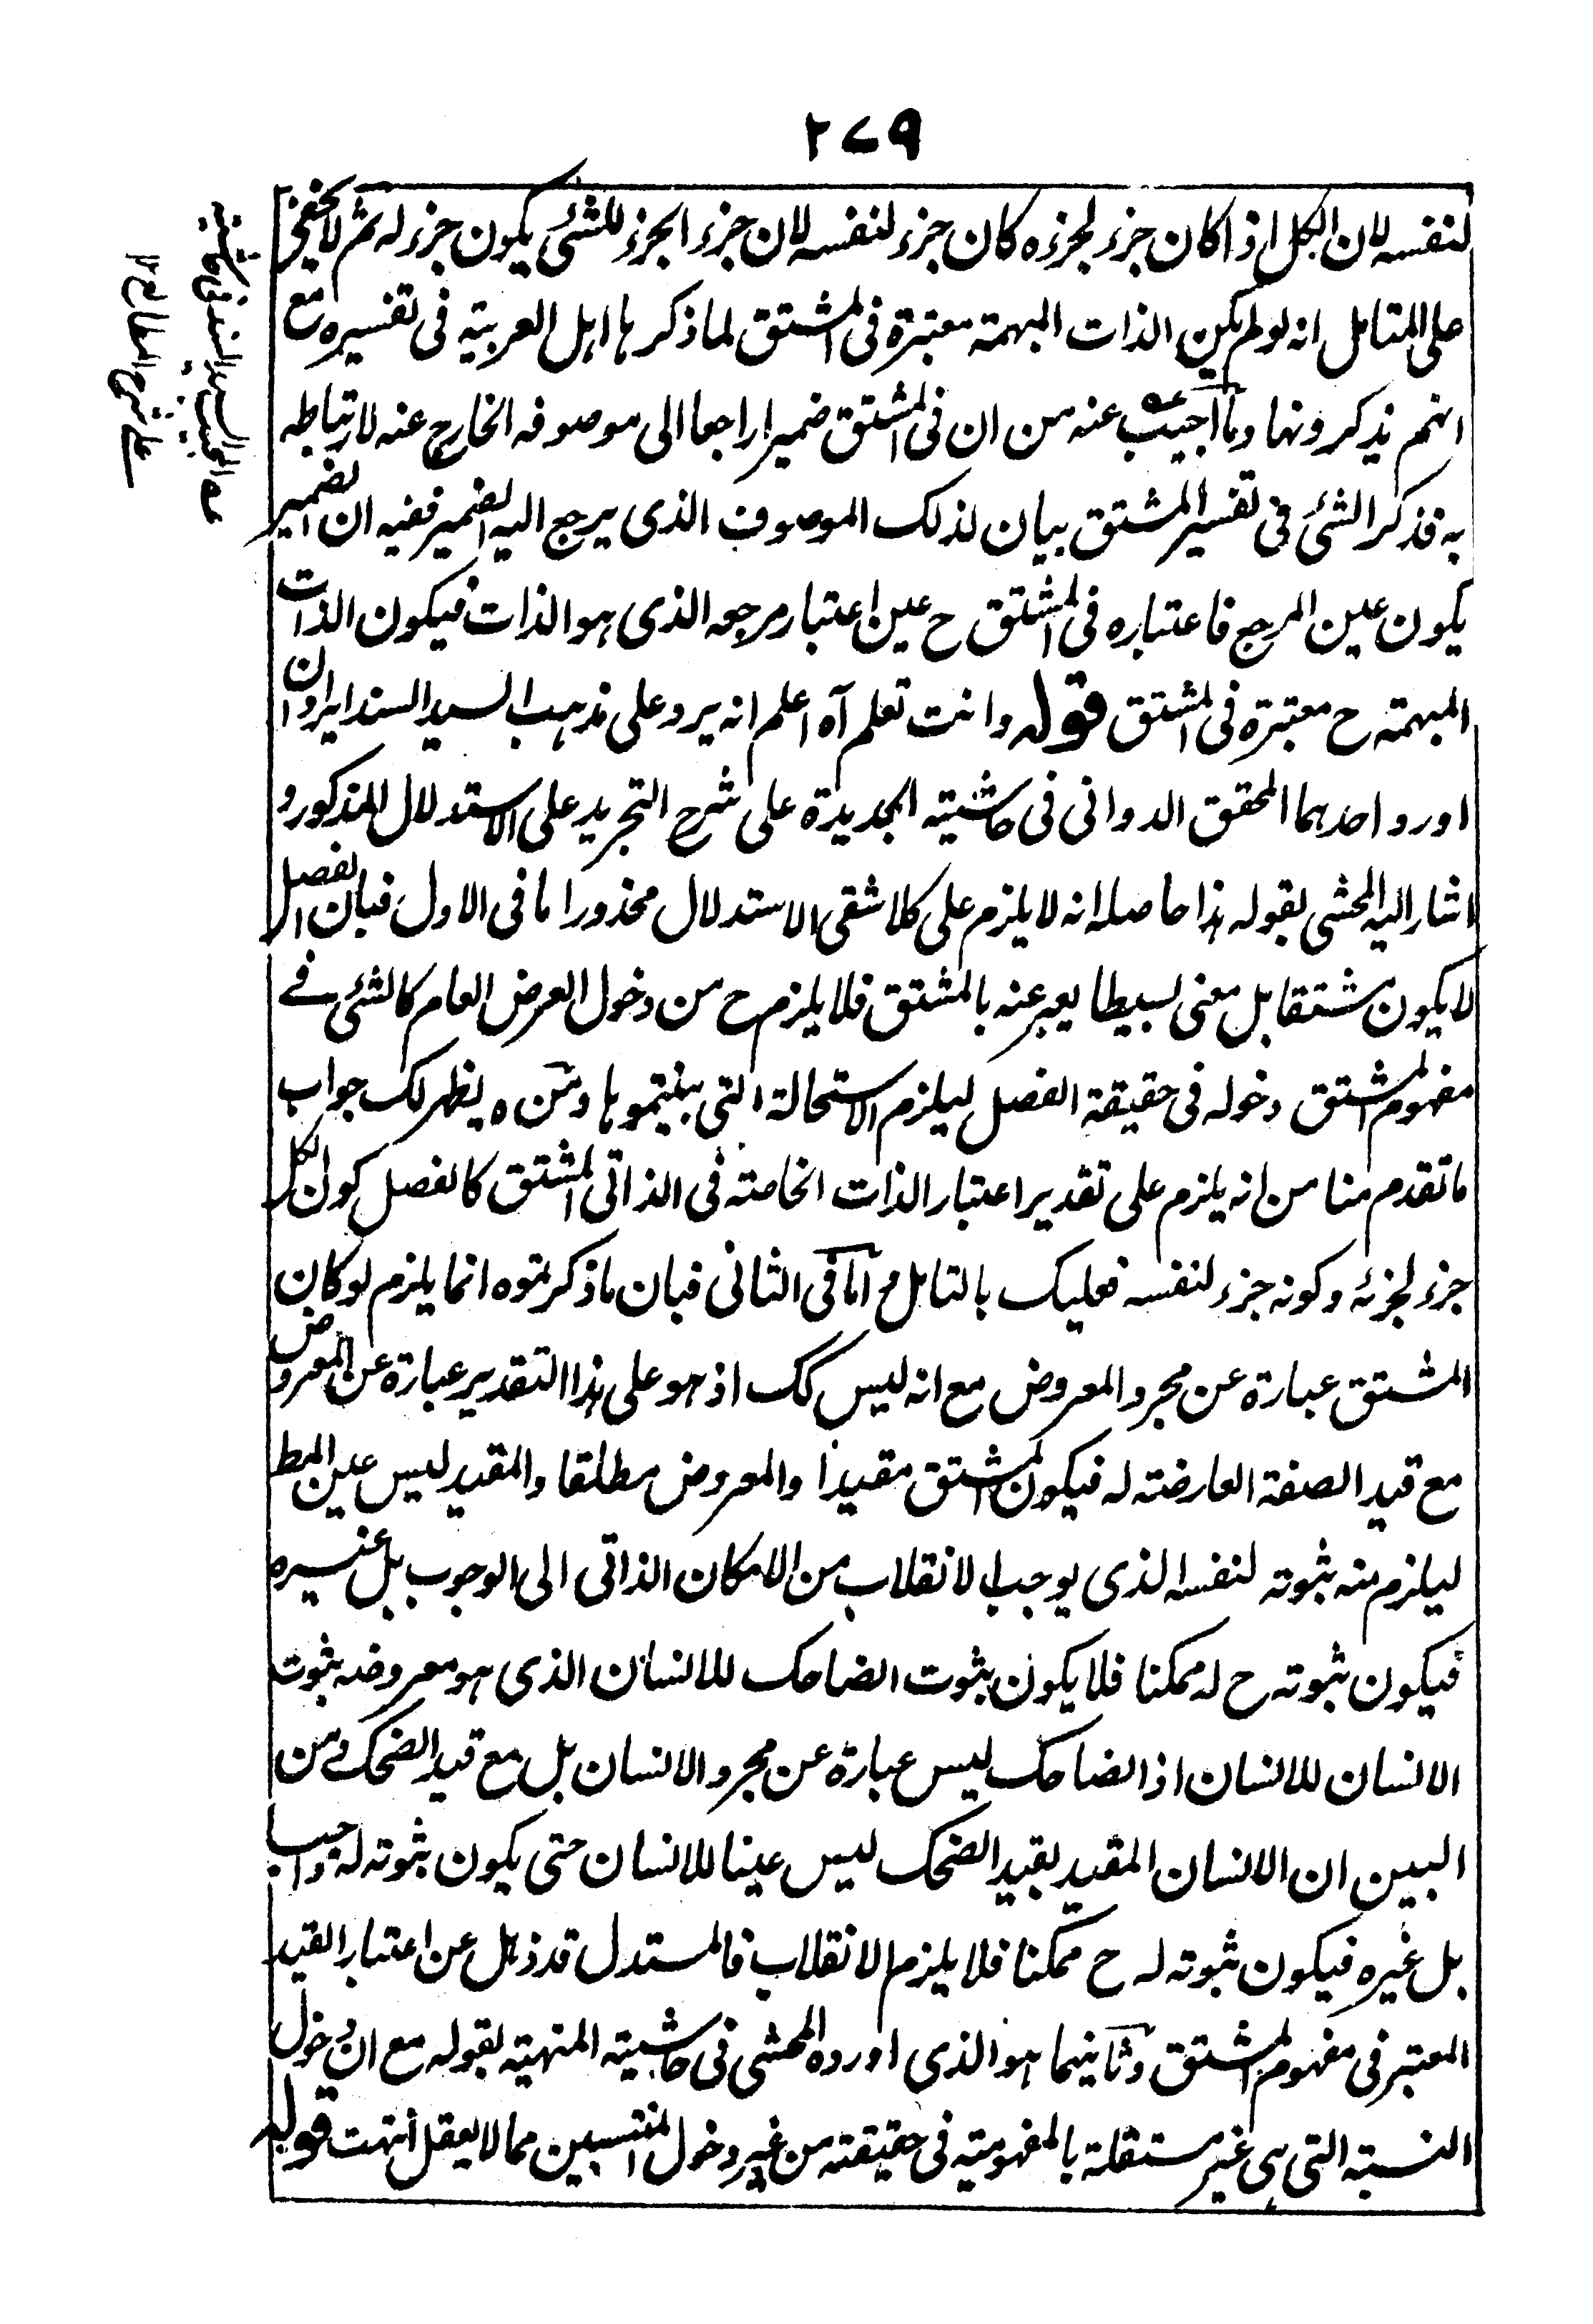 ٢٧٩
لنفسه لان الكل اذا كان جزء لجزءه كان جزء لنفسه لان جزء الجزء للشئ يكون جزء له ثم لا يخفى
على المتامل انه لو لم يكن الذات المبهمة معتبرة فى المشتق لما ذكرها اهل العربية فى تفسيره مع
انهم يذكرونها وما اجيب عنه من ان فى المشتق ضميرا راجعا الى موصوفه الخارج عنه لارتباطه
به فذكر الشئ فى تفسير المشتق بيان لذلك الموصوف الذى يرجع اليه الضمير ففيه ان الضمير
يكون عين المرجع فاعتباره فى المشتق ح عين اعتبار مرجعه الذى هو الذات فيكون الذات
المبهمة ح معتبرة فى المشتق قوله وانت تعلم آه اعلم انه يرد على مذهب السيد السند ايرادان
اورد احدهما المحقق الدوانى فى حاشيته الجديدة على شرح التجريد على الاستدلال المذكور و
اشار اليه المحشى بقوله هذا حاصله انه لا يلزم على كلا شقى الاستدلال محذور اما فى الاول فبان الفصل
لا يكون مشتقا بل معنى بسيطا يعبر عنه بالمشتق فلا يلزم ح من دخول العرض العام كالشئ فے
مفهوم المشتق دخوله فى حقيقة الفصل ليلزم الاستحالة التى بينتموها ومن ه يظهر لك جواب
ما تقدم منا من انه يلزم على تقدير اعتبار الذات الخاصة فى الذاتى المشتق كالفصل كون الكل
جزء لجزئه وكونه جزء لنفسه فعليك بالتامل م اما فى الثانى فبان ما ذكرتموه انما يلزم لو كان
المشتق عبارة عن مجرد المعروض مع انه ليس كك اذ هو على هذا التقدير عبارة عن المعروض
مع قيد الصفة العارضة له فيكون المشتق مقيدا والمعروض مطلقا والمقيد ليس عين المط
ليلزم منه ثبوته لنفسه الذى يوجب الانقلاب من الامكان الذاتى الى الوجوب بل غيره
فيكون ثبوته ح له ممكنا فلا يكون ثبوت الضاحك للانسان الذى هو معروضه ثبوت
الانسان للانسان اذ الضاحك ليس عبارة عن مجرد الانسان بل مع قيد الضحك ومن
البين ان الانسان المقيد بقيد الضحك ليس عينا للانسان حتى يكون ثبوته له واجبا
بل غيره فيكون ثبوته له ح ممكنا فلا يلزم الانقلاب فالمستدل قد ذهل عن اعتبار القيد
المعتبر فى مفهوم المشتق وثانيهما هو الذى اورده المحشى فى حاشية المنهية بقوله مع ان دخول
النسبة التى هى غير مستقلة بالمفهومية فى حقيقته من غير دخول المنتسبين مما لا يعقل انتهت قوله